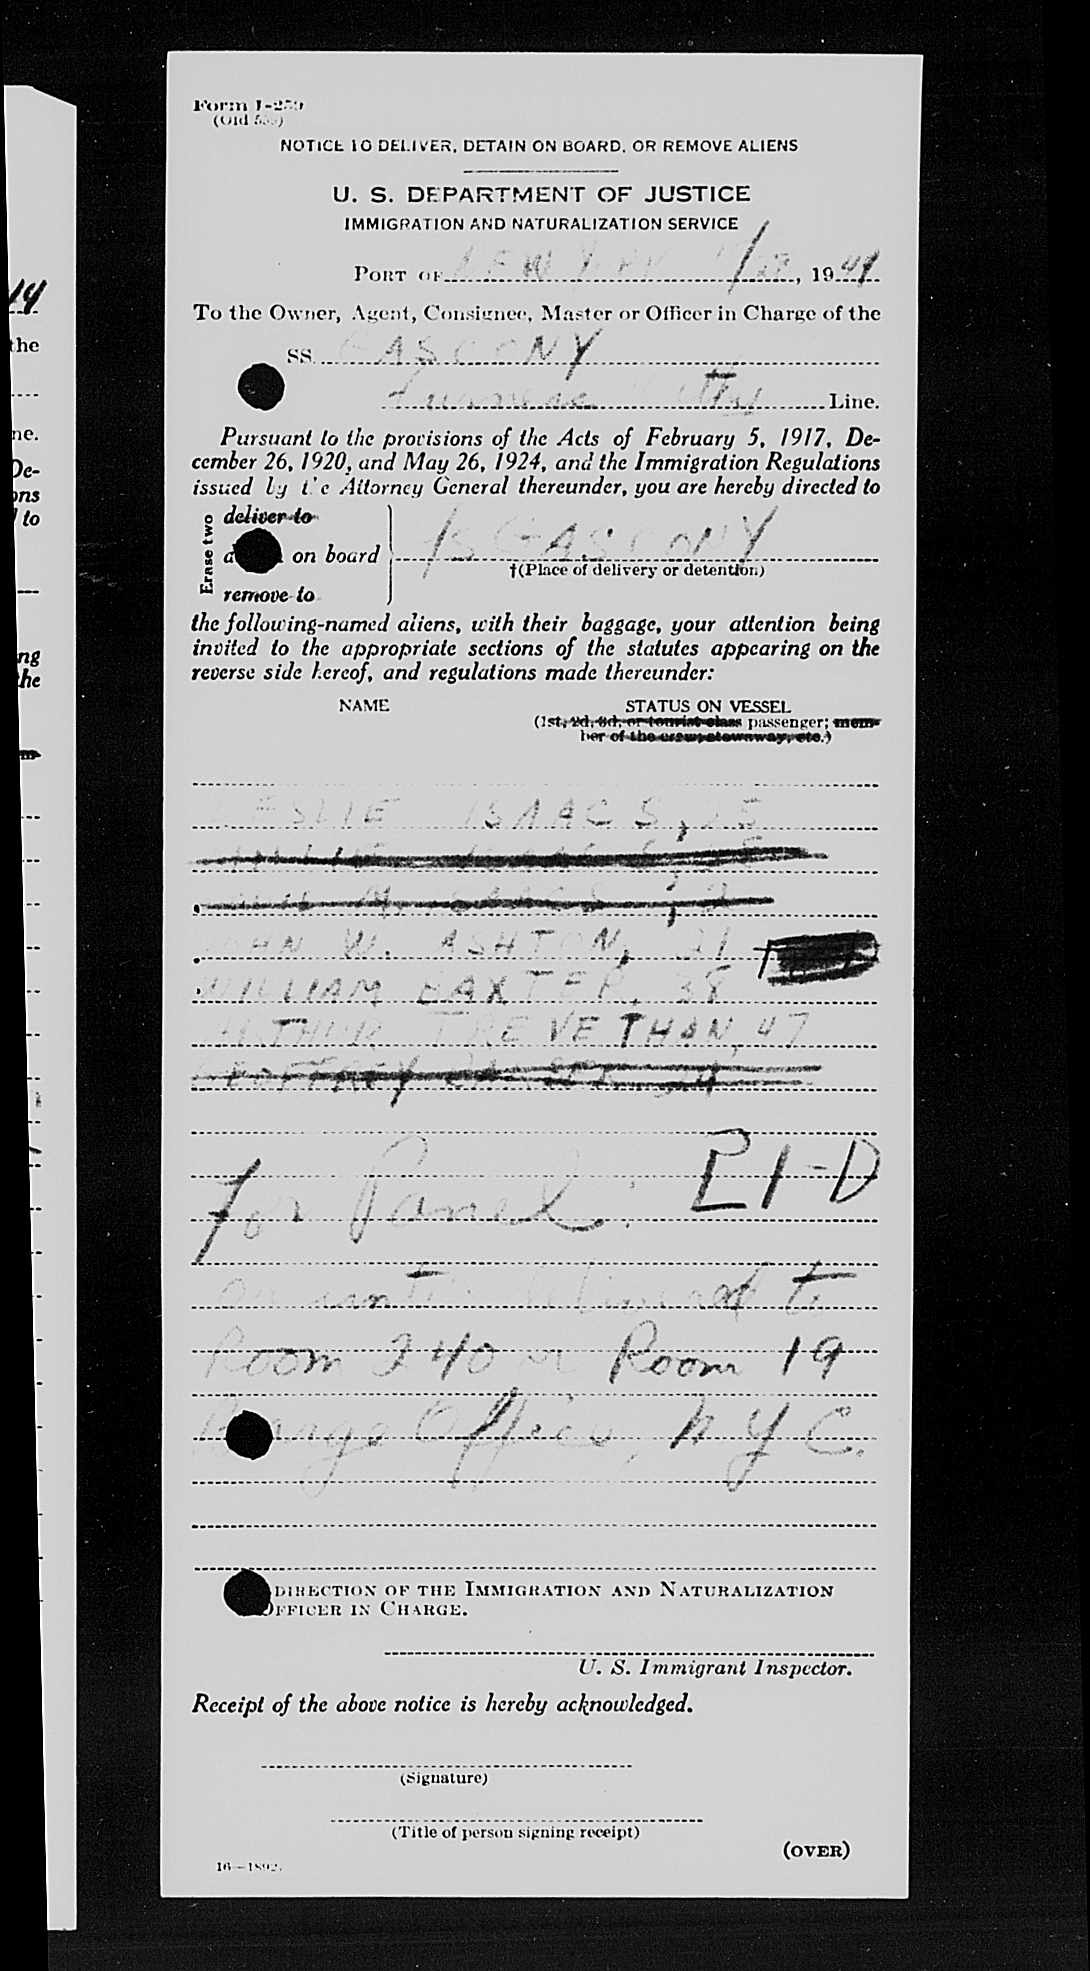 Form I-259
(Old 5
NOTICE TO DELIVER, DETAIN ON BOARD, OR REMOVE ALIENS
U. S. DEPARTMENT OF JUSTICE
IMMIGRATION AND NATURALIZATION SERVICE
PORT OF NEW YORK /27, 1944
To the Owner, Agent, Consignee, Master or Officer in Charge of the
SS. GASCONY
Line.
Pursuant to the provisions of the Acts of February 5, 1917, De-
cember 26, 1920, and May 26, 1924, and the Immigration Regulations
issued by the Attorney General thereunder, you are hereby directed to
Erase two
deliver to
on board
S GASCONY
†(Place of delivery or detention)
remove to
the following-named aliens, with their baggage, your attention being
invited to the appropriate sections of the statutes appearing on the
reverse side hereof, and regulations made thereunder:
NAME STATUS ON VESSEL
(1st, 2d, 3d, or tourist class passenger; mem-
ber of the crew, stowaway, etc.)
LESLIE ISAACS, 25
JOHN W. ASHTON, 21
WILLIAM BAXTER, 38
ARTHUR TREVETHAN, 47
GEOFFREY
for Panel: P1-D
delivered to
Room 240 or Room 19
Barge Office, N Y C.
DIRECTION OF THE IMMIGRATION AND NATURALIZATION
OFFICER IN CHARGE.
U. S. Immigrant Inspector.
Receipt of the above notice is hereby acknowledged.
(Signature)
(Title of person signing receipt)
(OVER)
16—1892
14
the
ne.
De-
ons
to
ng
the